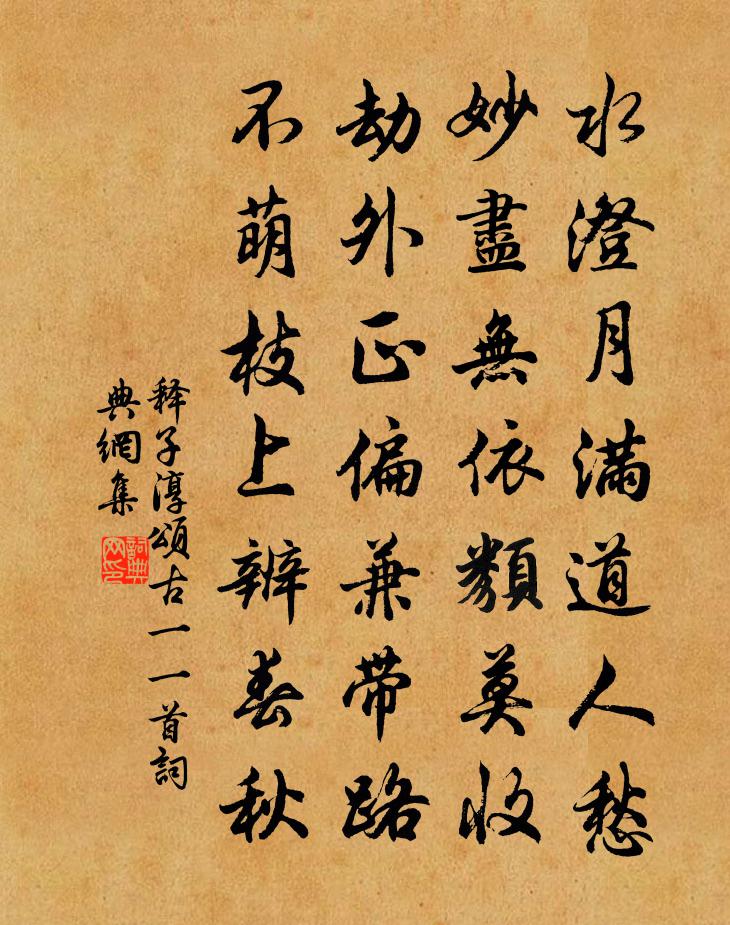 水澄月满道人愁
妙盡無依類莫收
劫外正偏兼带路
不萌枝上辨春秋
释子淳頌古一一首詞
典網集
詞典
网印